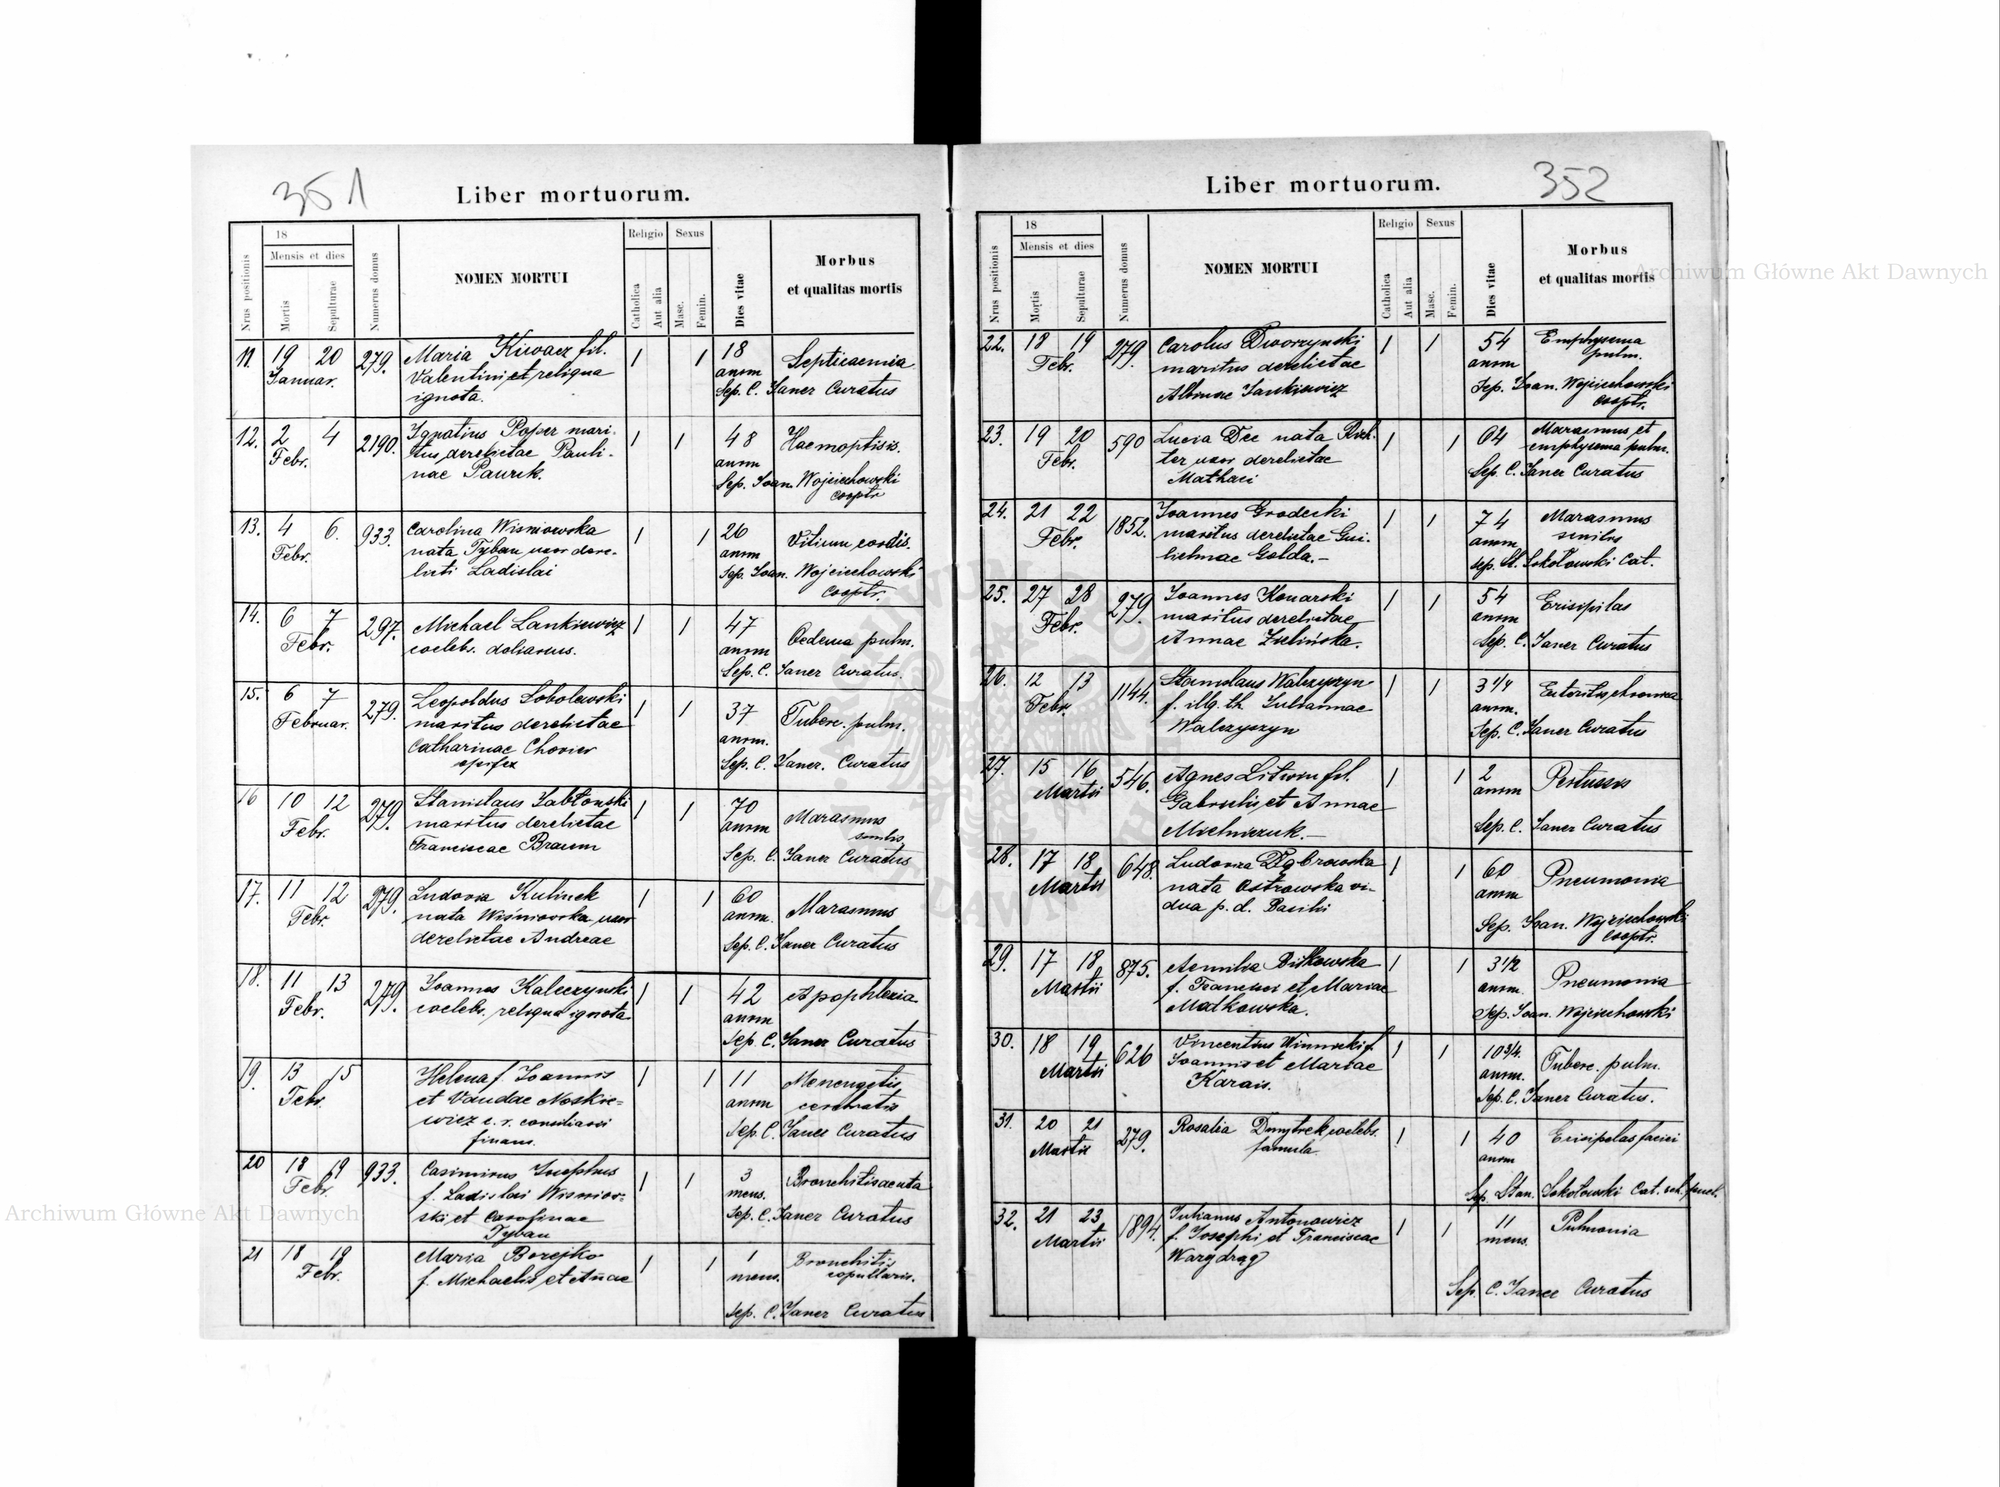 351
Liber mortuorum.
Nrus positionis
18
Mensis et dies
Mortis
Sepulturae
Numerus domus
NOMEN MORTUI
Religio
Catholica
Aut alia
Sexus
Masc.
Femin.
Dies vitae
Morbus
et qualitas mortis
11. 19 20 279. Maria Kiwacz fil. 1 1 18 Septicaemia
Januar. Valentini et reliqua annm
ignota. Sep. C. Janer Curatus
12. 2 4 2190. Ignatius Poper mari- 1 1 48 Haemoptisis.
Febr. tus derelictae Pauli- annm
nae Paurik. Sep. Joan. Wojciechowski
cooptr
13. 4 6. 933. Carolina Wisniowska 1 1 26 Vitium cordis.
Febr. nata Tyban uxor dere- annm
licti Ladislai Sep. Joan. Wojciechowski
cooptr.
14. 6 7 297. Michael Lankiewicz 1 1 47 Oedema pulm.
Febr. coelebs. doliarius. annm
Sep. C. Janer Curatus.
15. 6 7 279. Leopoldus Sobolewski 1 1 37 Tuberc. pulm.
Februar. maritus derelictae annm.
Catharinae Chovier Sep. C. Janer. Curatus
opifex
16 10 12 279. Stanislaus Jabłonski 1 1 70 Marasmus
Febr. maritus derelictae annm senilis
Franciscae Braum Sep. C. Janer Curatus
17. 11 12 279. Ludovia Kulinek 1 1 60 Marasmus
Febr. nata Wiśniovska uxor annm.
derelictae Andreae Sep. C. Janer Curatus
18. 11 13 279. Joannes Kaleczynski 1 1 42 Apophlexia
Febr. coelebs, reliqua ignota annm
Sep. C. Janer Curatus
19. 13 15 Helena f. Joannis 1 1 11 Menengitis
Febr. et Vandae Noskie- annm cerebralis
wicz c. r. consiliarii Sep. C. Janer Curatus
finans.
20 18 19 933. Casimirus Josephus 1 1 3 Bronchitis acuta
Febr. f. Ladislai Wisniow- mens.
ski et Carolinae Sep. C. Janer Curatus
Tyban
21 18 19 Maria Borejko 1 1 1 Bronchitis
Febr. f. Michaelis et Annae mens. capillaris.
Sep. C. Janer Curatus
352
Liber mortuorum.
Nrus positionis
18
Mensis et dies
Mortis
Sepulturae
Numerus domus
NOMEN MORTUI
Religio
Catholica
Aut alia
Sexus
Masc.
Femin.
Dies vitae
Morbus
et qualitas mortis
22. 18 19 279 Carolus Dworzynski 1 1 54 Emphysema
Febr. maritus derelictae annm pulm.
Albinae Jankiewicz Sep. Joan. Wojciechowski
cooptr.
23. 19 20 590 Lucia Dec nata Rich- 1 1 64 Marasmus et
Febr. ter uxor derelictae emphysema pulm.
Mathaei Sep. C. Janer Curatus
24. 21 22 1852. Joannes Grodecki 1 1 74 Marasmus
Febr. maritus derelictae Gui- annm senilis
lielmae Golda.- Sep. St. Sokołowski Cat.
25. 27 28 279. Joannes Konarski 1 1 54 Erisipilas
Febr. maritus derelictae annm
Annae Zielińska. Sep. C. Janer Curatus
26. 12 13 1144. Stanislaus Walczyszyn 1 1 3 1/4 Enteritis chronica
Febr. f. illg. th. Juliannae annm.
Walczyszyn Sep. C. Janer Curatus
27. 15 16 546. Agnes Litwin fil. 1 1 2 Pertussis
Martii Gabrielis et Annae annm
Mielniczuk.- Sep. C. Janer Curatus
28. 17 18 648. Ludovica Dąbrowska 1 1 60 Pneumonia
Martii nata Ostrowska vi- annm
dua p. d. Basilii Sep. Joan. Wojciechowski
cooptr.
29. 17 18 875. Aemilia Bilkowska 1 1 3 1/2 Pneumonia
Martii f. Francisci et Mariae annm.
Malkowska. Sep. Joan. Wojciechowski
30. 18 19 626 Vincentius Winnicki f. 1 1 10 3/4. Tuberc. pulm.
Martii Joannis et Mariae annm.
Karais. Sep. C. Janer Curatus.
31. 20 21 279. Rosalia Dmytrek coelebs. 1 1 40 Erisipelas faciei
Martii famula annm
Sep. Stan. Sokołowski Cat. sch. pud.
32. 21 23 1894. Julianus Antonowicz 1 1 11 Pulmonia
Martii f. Josephi et Franciscae mens.
Warydrąg
Sep. C. Janer Curatus
Archiwum Główne Akt Dawnych
Archiwum Główne Akt Dawnych